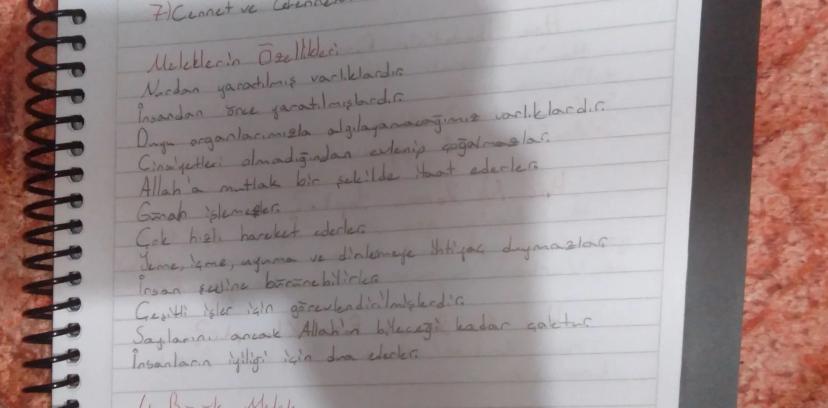 7) Cennet ve
Meleklerin Özellikleri
Nurdan yaratılmış varlıklardır.
İnsandan önce yaratılmışlardır.
Duyu organlarımızla algılayamacağımız varlıklardır.
Cinsiyetleri olmadığından evlenip çoğalmazlar.
Allah'a mutlak bir şekilde itaat ederler.
Günah işlemezler.
Çok hızlı hareket ederler.
Yeme, içme, uyuma ve dinlemeye ihtiyaç duymazlar
İnsan şekline bürünebilirler
Çeşitli işler için görevlendirilmişlerdir.
Sayılarını ancak Allah'ın bileceği kadar çoktur.
İnsanların iyiliği için dua ederler.